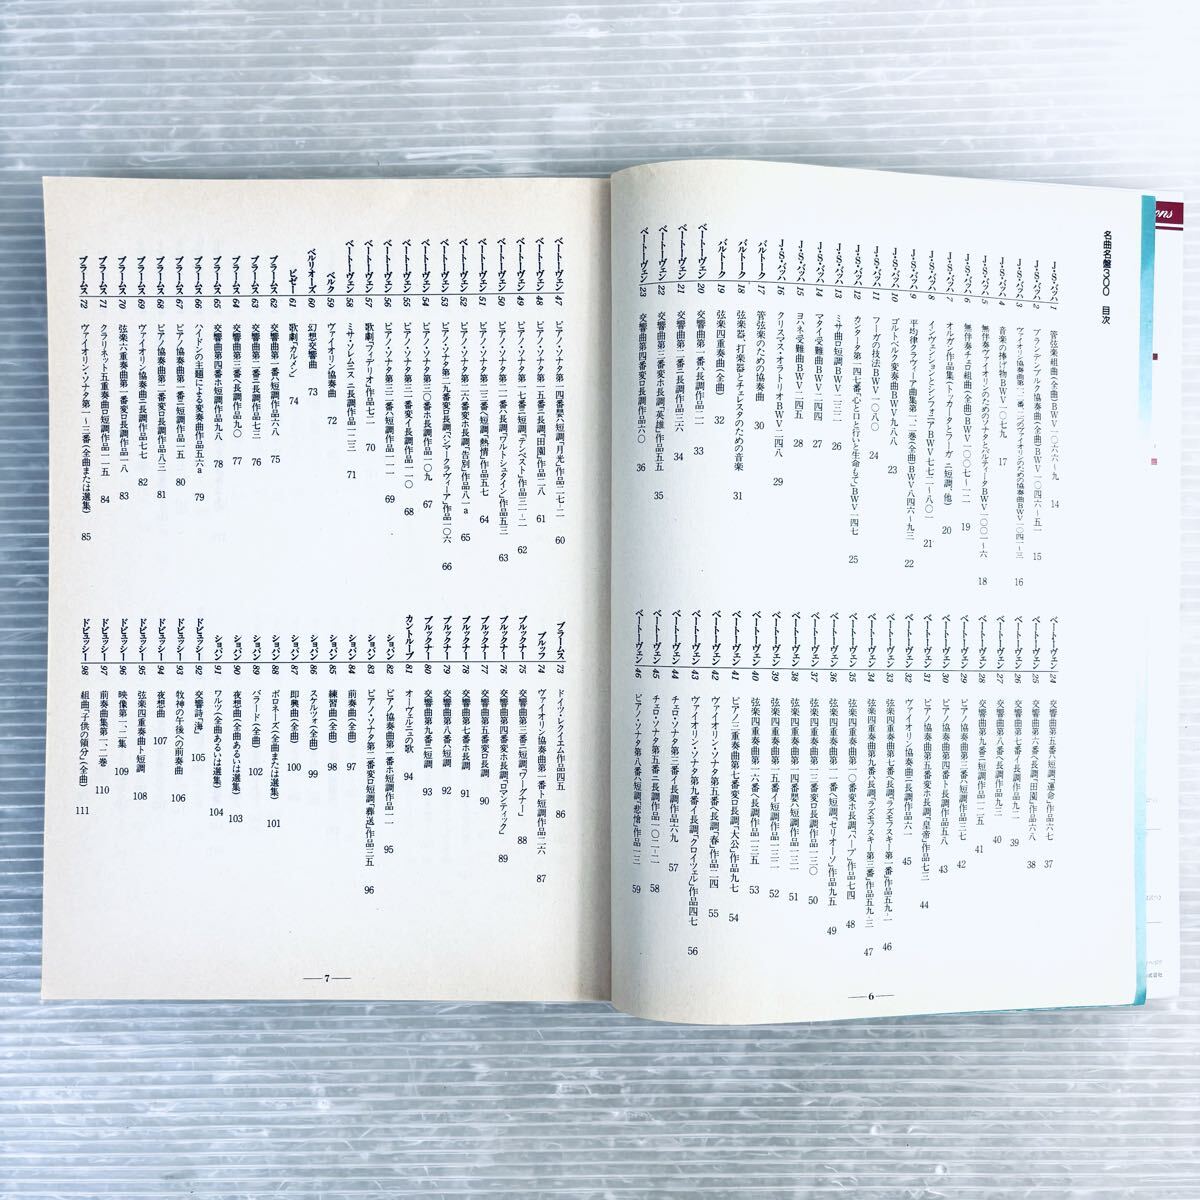 名曲名盤300 目次
J・S・バッハ 1 管弦楽組曲(全曲)BWV一〇六六〜九 14
J・S・バッハ 2 ブランデンブルク協奏曲(全曲)BWV一〇四六〜五一 15
J・S・バッハ 3 ヴァイオリン協奏曲第一、二番、二つのヴァイオリンのための協奏曲BWV一〇四一〜三 16
J・S・バッハ 4 音楽の捧げ物BWV一〇七九 17
J・S・バッハ 5 無伴奏ヴァイオリンのためのソナタとパルティータBWV一〇〇一〜六 18
J・S・バッハ 6 無伴奏チェロ組曲(全曲)BWV一〇〇七〜一二 19
J・S・バッハ 7 オルガン作品集(トッカータとフーガ ニ短調、他) 20
J・S・バッハ 8 インヴェンションとシンフォニアBWV七七二〜八〇一 21
J・S・バッハ 9 平均律クラヴィーア曲集第一、二巻(全曲)BWV八四六〜九三 22
J・S・バッハ 10 ゴルトベルク変奏曲BWV九八八 23
J・S・バッハ 11 フーガの技法BWV一〇八〇 24
J・S・バッハ 12 カンタータ第一四七番「心と口と行いと生命もて」BWV一四七 25
J・S・バッハ 13 ミサ曲ロ短調BWV二三二 26
J・S・バッハ 14 マタイ受難曲BWV二四四 27
J・S・バッハ 15 ヨハネ受難曲BWV二四五 28
J・S・バッハ 16 クリスマス・オラトリオBWV二四八 29
バルトーク 17 管弦楽のための協奏曲 30
バルトーク 18 弦楽器、打楽器とチェレスタのための音楽 31
バルトーク 19 弦楽四重奏曲(全曲) 32
ベートーヴェン 20 交響曲第一番ハ長調作品二一 33
ベートーヴェン 21 交響曲第二番ニ長調作品三六 34
ベートーヴェン 22 交響曲第三番変ホ長調「英雄」作品五五 35
ベートーヴェン 23 交響曲第四番変ロ長調作品六〇 36
ベートーヴェン 24 交響曲第五番ハ短調「運命」作品六七 37
ベートーヴェン 25 交響曲第六番ヘ長調「田園」作品六八 38
ベートーヴェン 26 交響曲第七番イ長調作品九二 39
ベートーヴェン 27 交響曲第八番ヘ長調作品九三 40
ベートーヴェン 28 交響曲第九番ニ短調作品一二五 41
ベートーヴェン 29 ピアノ協奏曲第三番ハ短調作品三七 42
ベートーヴェン 30 ピアノ協奏曲第四番ト長調作品五八 43
ベートーヴェン 31 ピアノ協奏曲第五番変ホ長調「皇帝」作品七三 44
ベートーヴェン 32 ヴァイオリン協奏曲ニ長調作品六一 45
ベートーヴェン 33 弦楽四重奏曲第七番ヘ長調「ラズモフスキー第一番」作品五九-一 46
ベートーヴェン 34 弦楽四重奏曲第九番ハ長調「ラズモフスキー第三番」作品五九-三 47
ベートーヴェン 35 弦楽四重奏曲第一〇番変ホ長調「ハープ」作品七四 48
ベートーヴェン 36 弦楽四重奏曲第一一番ヘ短調「セリオーソ」作品九五 49
ベートーヴェン 37 弦楽四重奏曲第一三番変ロ長調作品一三〇 50
ベートーヴェン 38 弦楽四重奏曲第一四番嬰ハ短調作品一三一 51
ベートーヴェン 39 弦楽四重奏曲第一五番イ短調作品一三二 52
ベートーヴェン 40 弦楽四重奏曲第一六番ヘ長調作品一三五 53
ベートーヴェン 41 ピアノ三重奏曲第七番変ロ長調「大公」作品九七 54
ベートーヴェン 42 ヴァイオリン・ソナタ第五番ヘ長調「春」作品二四 55
ベートーヴェン 43 ヴァイオリン・ソナタ第九番イ長調「クロイツェル」作品四七 56
ベートーヴェン 44 チェロ・ソナタ第三番イ長調作品六九 57
ベートーヴェン 45 チェロ・ソナタ第五番ニ長調作品一〇二-二 58
ベートーヴェン 46 ピアノ・ソナタ第八番ハ短調「悲愴」作品一三 59
6
ベートーヴェン 47 ピアノ・ソナタ第一四番嬰ハ短調「月光」作品二七-二 60
ベートーヴェン 48 ピアノ・ソナタ第一五番ニ長調「田園」作品二八 61
ベートーヴェン 49 ピアノ・ソナタ第一七番ニ短調「テンペスト」作品三一-二 62
ベートーヴェン 50 ピアノ・ソナタ第二一番ハ長調「ワルトシュタイン」作品五三 63
ベートーヴェン 51 ピアノ・ソナタ第二三番ヘ短調「熱情」作品五七 64
ベートーヴェン 52 ピアノ・ソナタ第二六番変ホ長調「告別」作品八一a 65
ベートーヴェン 53 ピアノ・ソナタ第二九番変ロ長調「ハンマークラヴィーア」作品一〇六 66
ベートーヴェン 54 ピアノ・ソナタ第三〇番ホ長調作品一〇九 67
ベートーヴェン 55 ピアノ・ソナタ第三一番変イ長調作品一一〇 68
ベートーヴェン 56 ピアノ・ソナタ第三二番ハ短調作品一一一 69
ベートーヴェン 57 歌劇「フィデリオ」作品七二 70
ベートーヴェン 58 ミサ・ソレムニス ニ長調作品一二三 71
ベルク 59 ヴァイオリン協奏曲 72
ベルリオーズ 60 幻想交響曲 73
ビゼー 61 歌劇「カルメン」 74
ブラームス 62 交響曲第一番ハ短調作品六八 75
ブラームス 63 交響曲第二番ニ長調作品七三 76
ブラームス 64 交響曲第三番ヘ長調作品九〇 77
ブラームス 65 交響曲第四番ホ短調作品九八 78
ブラームス 66 ハイドンの主題による変奏曲作品五六a 79
ブラームス 67 ピアノ協奏曲第一番ニ短調作品一五 80
ブラームス 68 ピアノ協奏曲第二番変ロ長調作品八三 81
ブラームス 69 ヴァイオリン協奏曲ニ長調作品七七 82
ブラームス 70 弦楽六重奏曲第一番変ロ長調作品一八 83
ブラームス 71 クラリネット五重奏曲ロ短調作品一一五 84
ブラームス 72 ヴァイオリン・ソナタ第一〜三番(全曲または選集) 85
ブラームス 73 ドイツ・レクイエム作品四五 86
ブルッフ 74 ヴァイオリン協奏曲第一番ト短調作品二六 87
ブルックナー 75 交響曲第三番ニ短調「ワーグナー」 88
ブルックナー 76 交響曲第四番変ホ長調「ロマンティック」 89
ブルックナー 77 交響曲第五番変ロ長調 90
ブルックナー 78 交響曲第七番ホ長調 91
ブルックナー 79 交響曲第八番ハ短調 92
ブルックナー 80 交響曲第九番ニ短調 93
カントルーブ 81 オーヴェルニュの歌 94
ショパン 82 ピアノ協奏曲第一番ホ短調作品一一 95
ショパン 83 ピアノ・ソナタ第二番変ロ短調「葬送」作品三五 96
ショパン 84 前奏曲(全曲) 97
ショパン 85 練習曲(全曲) 98
ショパン 86 スケルツォ(全曲) 99
ショパン 87 即興曲(全曲) 100
ショパン 88 ポロネーズ(全曲または選集) 101
ショパン 89 バラード(全曲) 102
ショパン 90 夜想曲(全曲あるいは選集) 103
ショパン 91 ワルツ(全曲あるいは選集) 104
ドビュッシー 92 交響詩「海」 105
ドビュッシー 93 牧神の午後への前奏曲 106
ドビュッシー 94 夜想曲 107
ドビュッシー 95 弦楽四重奏曲ト短調 108
ドビュッシー 96 映像第一、二集 109
ドビュッシー 97 前奏曲集第一、二巻 110
ドビュッシー 98 組曲「子供の領分」(全曲) 111
7